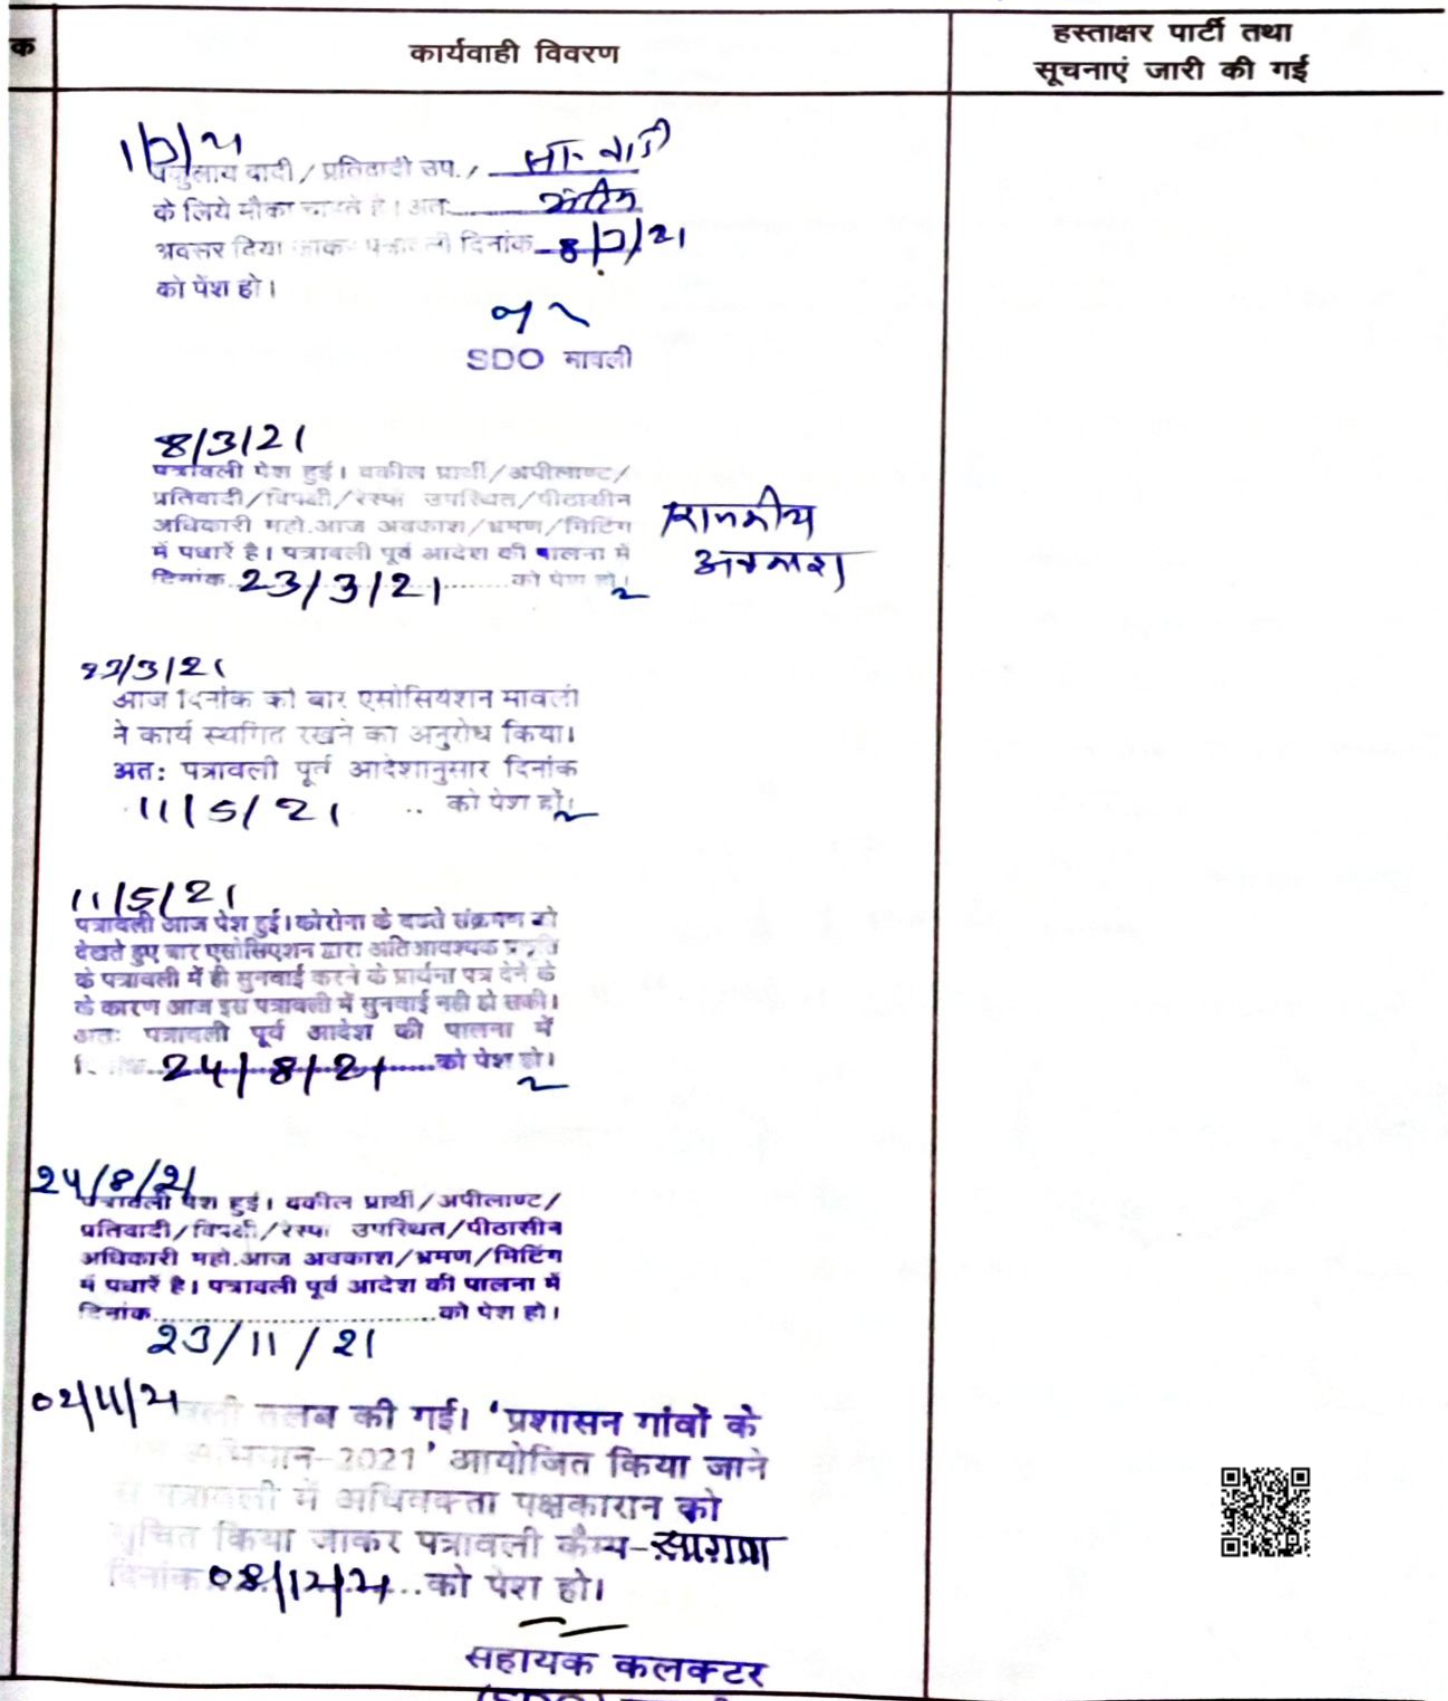 क
कार्यवाही विवरण
हस्ताक्षर पार्टी तथा
सूचनाएं जारी की गई
वादी / प्रतिवादी उप. /
के लिये मौका चाहते है। अतः
अवसर दिया जाकर पत्रावली दिनांक 8/3/21
को पेंश हो।
SDO मावली
8/3/21
पत्रावली पेश हुई। वकील प्रार्थी/अपीलाण्ट/
प्रतिवादी/विपक्षी/रेस्पा उपस्थित/पीठासीन
अधिकारी महो.आज अवकाश/भ्रमण/मिटिंग
में पधारें है। पत्रावली पूर्व आदेश की पालना में
दिनांक 23/3/21 को पेश हो।
राजकीय
अवकाश
23/3/21
आज दिनांक को बार एसोसियेशन मावली
ने कार्य स्थगित रखने का अनुरोध किया।
अतः पत्रावली पूर्व आदेशानुसार दिनांक
11/5/21 .. को पेश हों।
11/5/21
पत्रावली आज पेश हुई। कोरोना के बढते संक्रमण को
देखते हुए बार एसोसिएशन द्वारा अतिआवश्यक प्रकृति
के पत्रावली में ही सुनवाई करने के प्रार्थना पत्र देने के
के कारण आज इस पत्रावली में सुनवाई नही हो सकी।
अतः पत्रावली पूर्व आदेश की पालना में
24/8/21 को पेश हो।
24/8/21
पत्रावली पेश हुई। वकील प्रार्थी/अपीलाण्ट/
प्रतिवादी/विपक्षी/रेस्पा उपस्थित/पीठासीन
अधिकारी महो.आज अवकाश/भ्रमण/मिटिंग
में पधारें है। पत्रावली पूर्व आदेश की पालना में
दिनांक..............................को पेश हो।
23/11/21
02/11/21
तलब की गई। 'प्रशासन गांवों के
अभियान-2021' आयोजित किया जाने
से पत्रावली में अधिवक्ता पक्षकारान को
सुचित किया जाकर पत्रावली कैम्प-
दिनांक 08/12/21 को पेश हो।
सहायक कलक्टर